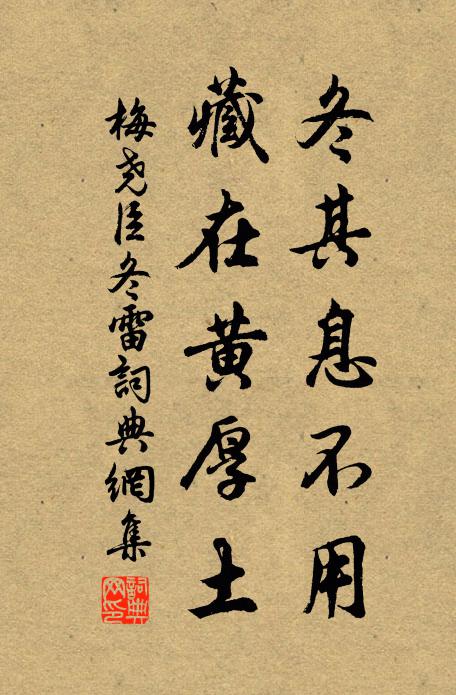 冬其息不用
藏在黄厚土
梅尧臣冬雷詞典網集
詞典网印